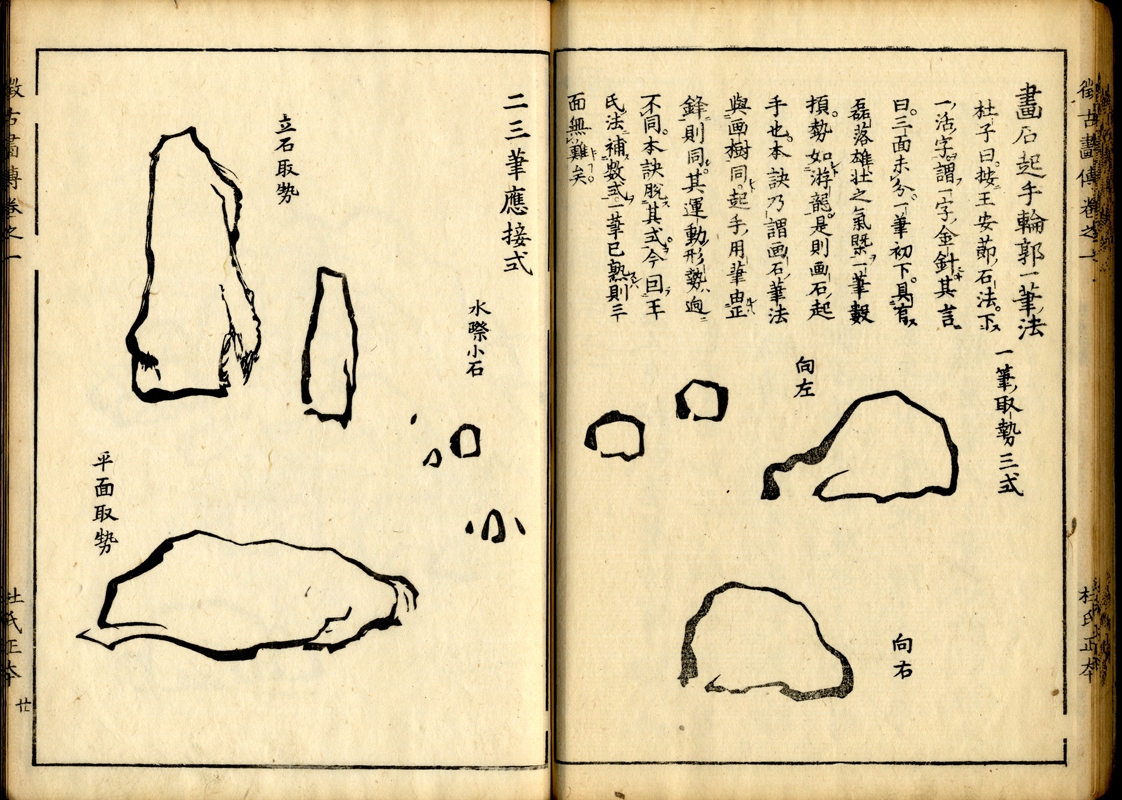 畫石起手輪郭一筆法
杜子曰按王安節石法下
一活字謂一字金針其言
曰三面未分一筆初下具有
磊落雄壯之氣既一筆數
頓勢如游龍是則画石起
手也本訣乃謂画石筆法
與画樹同起手用筆由正
鋒則同其運動形勢逈
不同本訣脫其式今回王
氏法補數式一筆已熟則三
面無難矣
一筆取勢三式
向左
向右
二三筆應接式
水際小石
立石取勢
平面取勢
徵古畫傳卷之一
杜氏正本
徵古畫傳卷之一
杜氏正本
廿